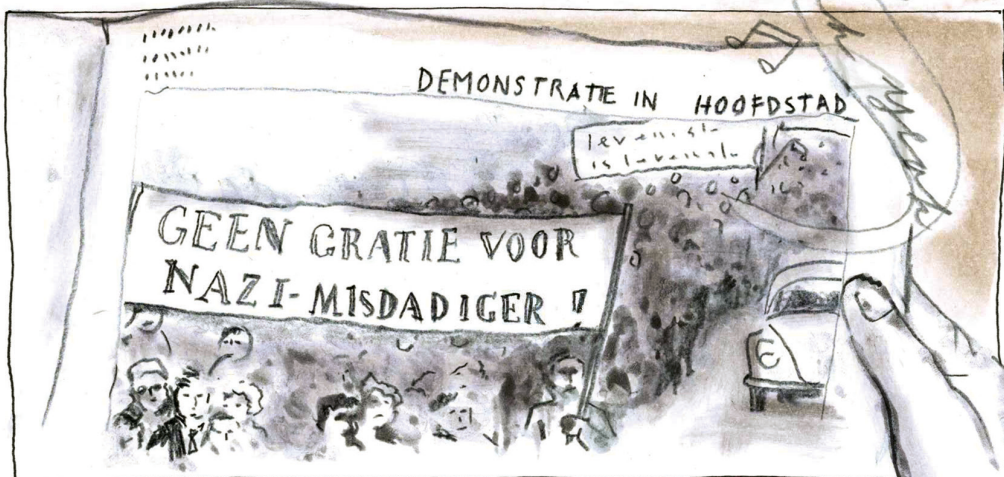 DEMONSTRATIE IN HOOFDSTAD
GEEN GRATIE VOOR
NAZI-MISDADIGER !